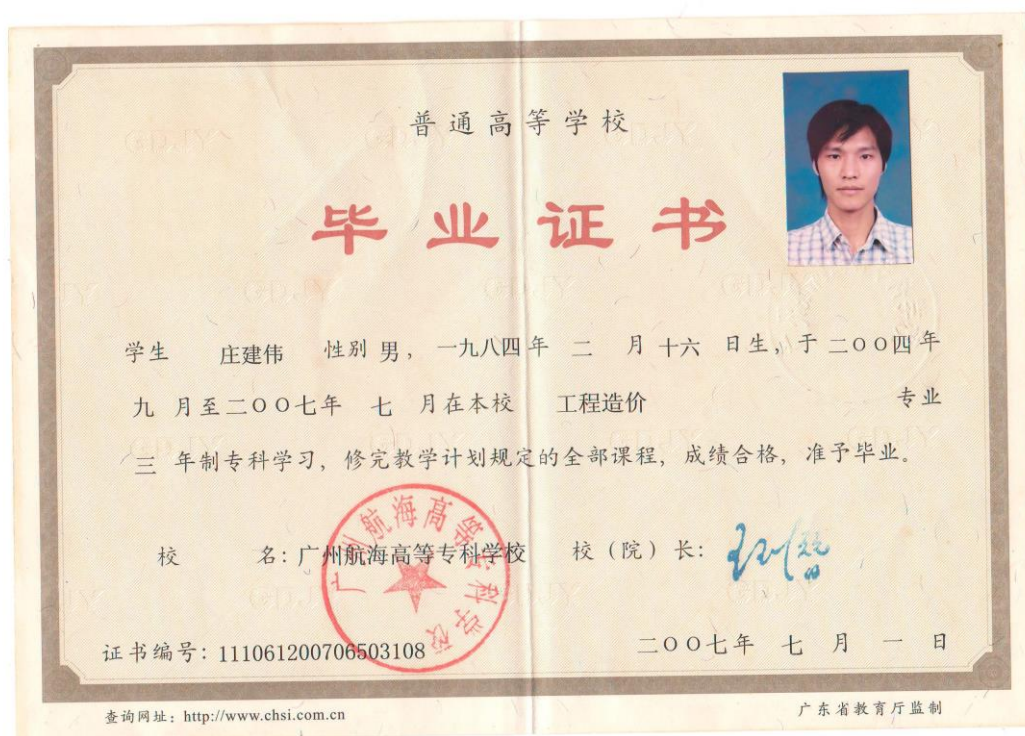 普通高等学校
毕业证书
学生 庄建伟 性别 男，一九八四年 二 月十六 日生，于二〇〇四年
九 月至二〇〇七年 七 月在本校 工程造价 专业
三 年制专科学习，修完教学计划规定的全部课程，成绩合格，准予毕业。
校 名：广州航海高等专科学校 校（院）长：
广州航海高等专科学校
证书编号：111061200706503108 二〇〇七年 七 月 一 日
查询网址：http://www.chsi.com.cn 广东省教育厅监制